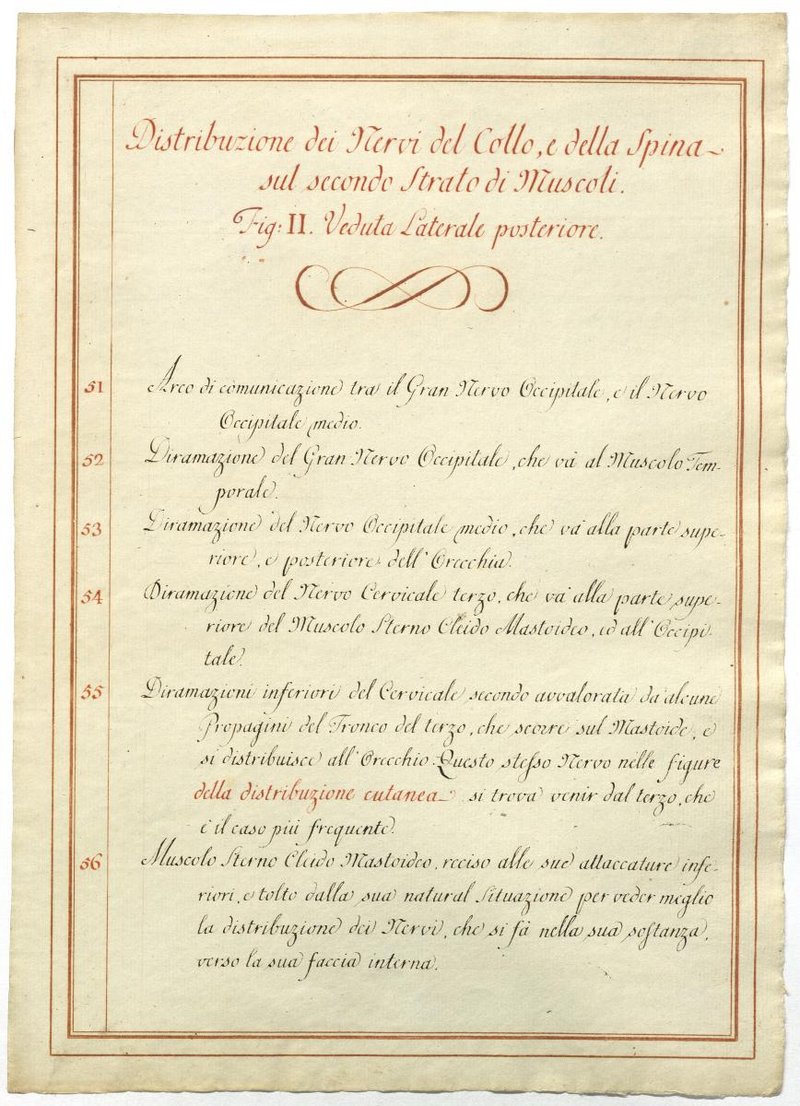 Distribuzione dei Nervi del Collo, e della Spina
sul secondo Strato di Muscoli.
Fig: II. Veduta Laterale posteriore.
51 Arco di comunicazione tra il Gran Nervo Occipitale, e il Nervo
Occipitale medio.
52 Diramazione del Gran Nervo Occipitale, che và al Muscolo Tem-
porale.
53 Diramazione del Nervo Occipitale medio, che và alla parte supe-
riore, e posteriore dell' Orecchia.
54 Diramazione del Nervo Cervicale terzo, che và alla parte supe-
riore del Muscolo Sterno Cleido Mastoideo, ed all' Occipi-
tale.
55 Diramazioni inferiori del Cervicale secondo avvalorata da alcune
Propagini del Tronco del terzo, che scorre sul Mastoide, e
si distribuisce all' Orecchio. Questo stesso Nervo nelle figure
della distribuzione cutanea si trova venir dal terzo, che
è il caso più frequente.
56 Muscolo Sterno Cleido Mastoideo, reciso alle sue attaccature infe-
riori, e tolto dalla sua natural Situazione per veder meglio
la distribuzione dei Nervi, che si fà nella sua sostanza,
verso la sua faccia interna.